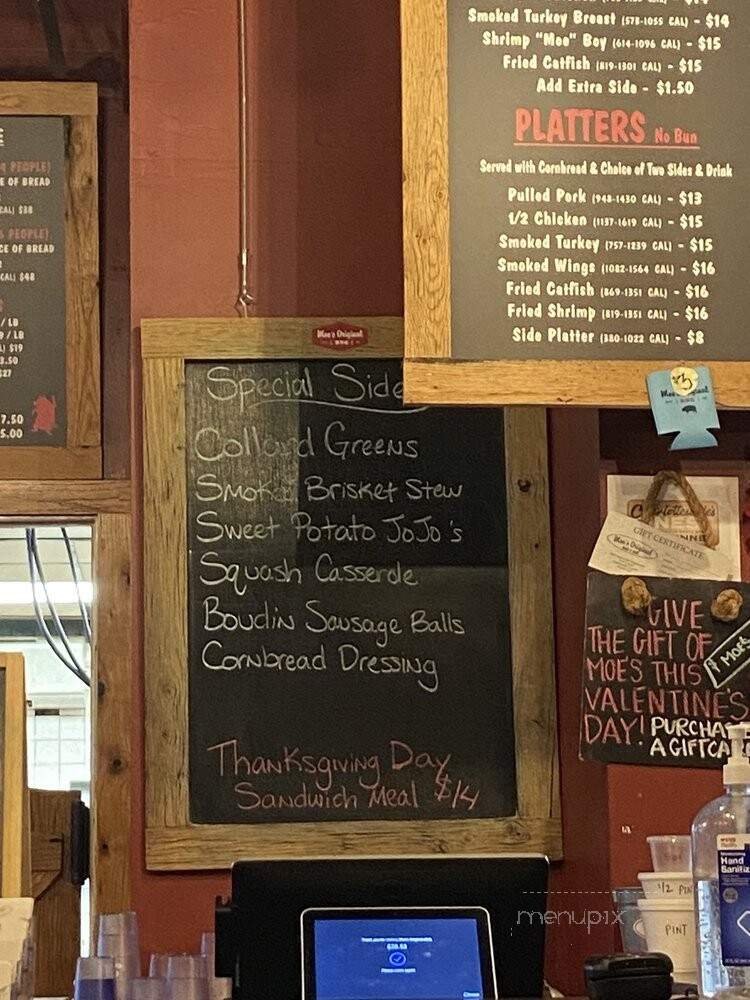 Smoked Turkey Breast (578-1055 CAL) - $14
Shrimp "Moe" Boy (614-1096 CAL) - $15
Fried Catfish (819-1301 CAL) - $15
Add Extra Side - $1.50
PLATTERS No Bun
Served with Cornbread & Choice of Two Sides & Drink
Pulled Pork (948-1430 CAL) - $13
1/2 Chicken (1137-1619 CAL) - $15
Smoked Turkey (757-1239 CAL) - $15
Smoked Wings (1082-1564 CAL) - $16
Fried Catfish (869-1351 CAL) - $16
Fried Shrimp (819-1351 CAL) - $16
Side Platter (380-1022 CAL) - $8
PEOPLE)
E OF BREAD
CAL) $38
PEOPLE)
CE OF BREAD
CAL) $48
/ LB
/ LB
$19
3.50
$27
7.50
5.00
Moe's Original
BBQ
Special Side
Collard Greens
Smoked Brisket Stew
Sweet Potato JoJo's
Squash Casserole
Boudin Sausage Balls
Cornbread Dressing
Thanksgiving Day
Sandwich Meal $14
$3
GIFT CERTIFICATE
Moe's Original
GIVE
THE GIFT OF
MOE'S THIS
VALENTINE'S
DAY! PURCHA
A GIFTCA
MOE'S
1/2 PIN
PINT
Hand
Sanitiz
menupix